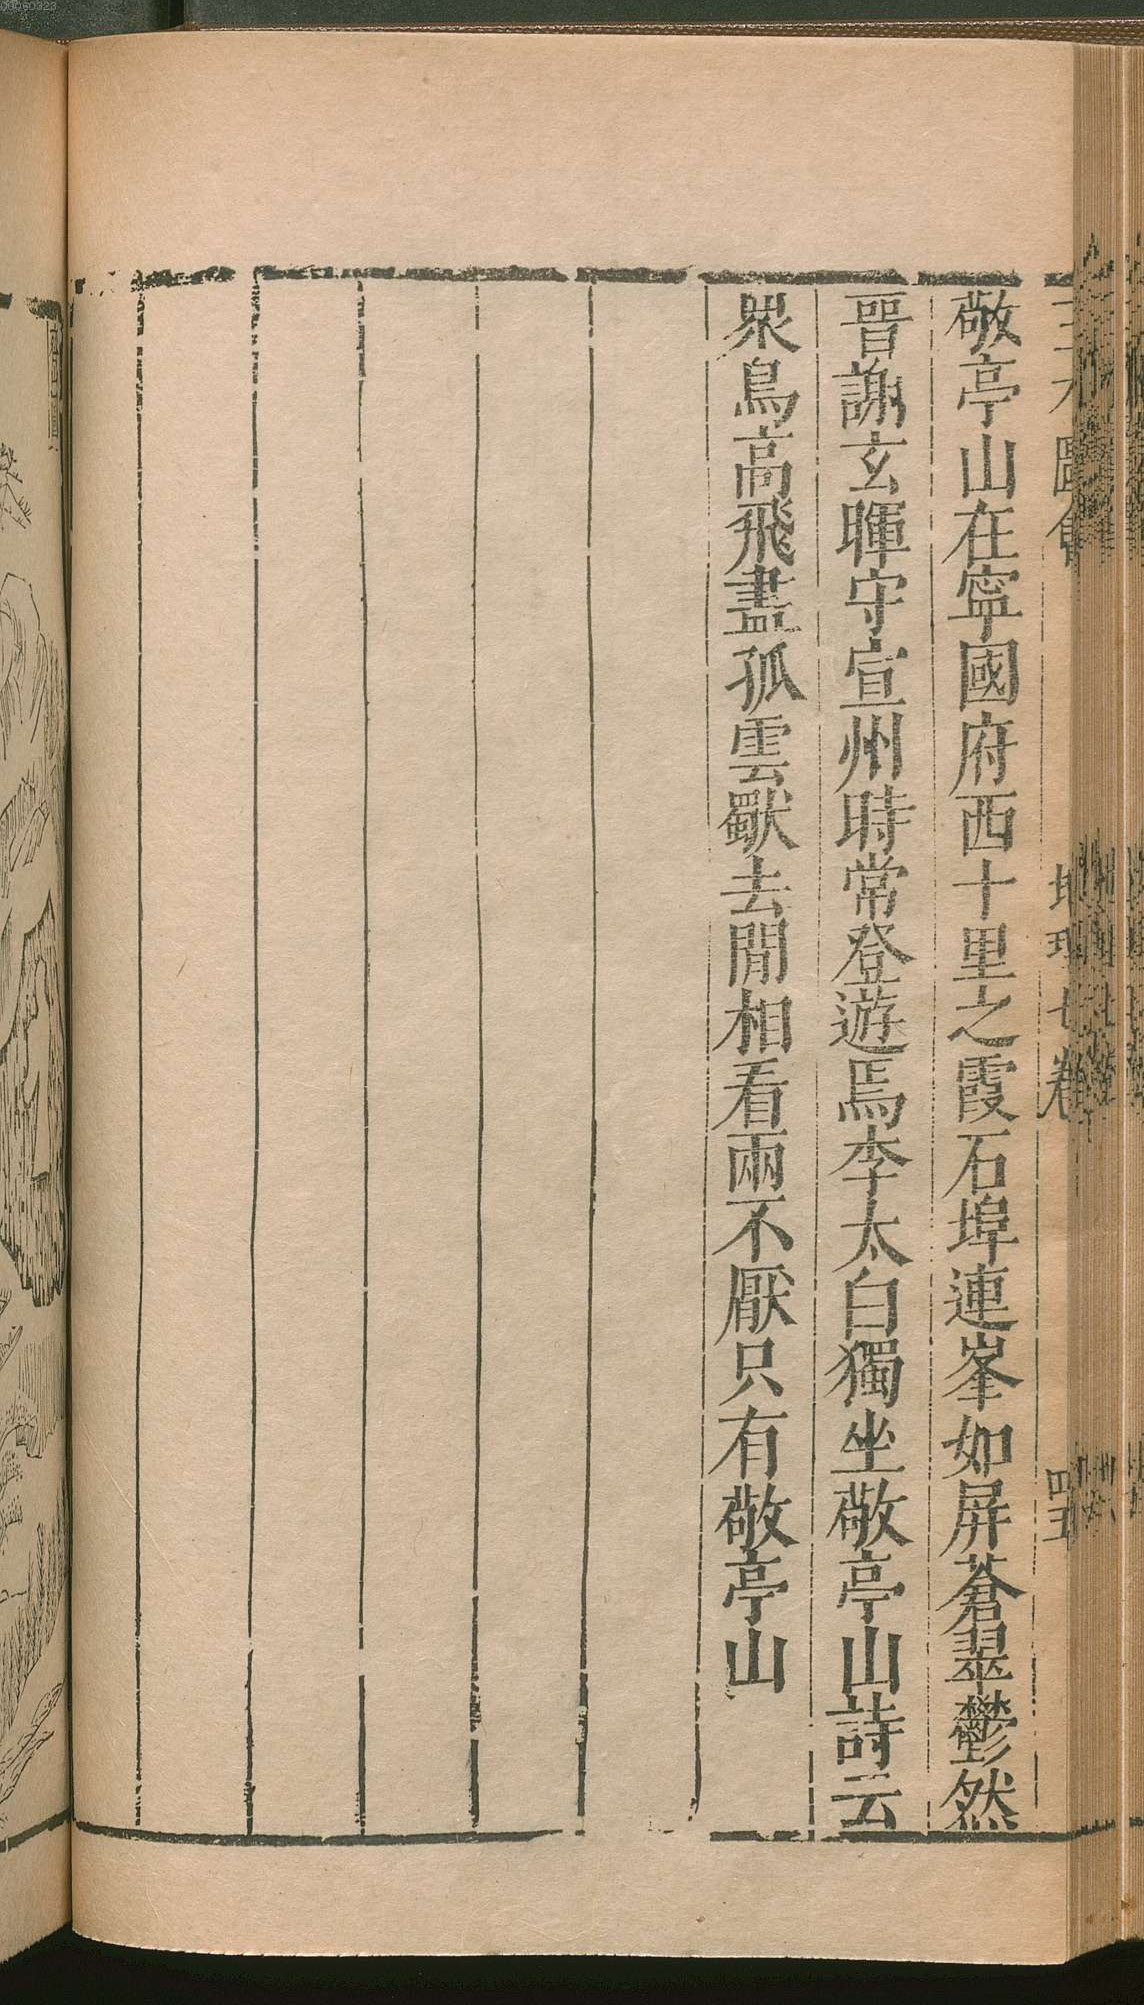 敬亭山在寧國府西十里之霞石埠連峯如屏蒼翠鬱然
晉謝玄暉守宣州時常登遊焉李太白獨坐敬亭山詩云
衆鳥高飛盡孤雲獸去閒相看兩不厭只有敬亭山
00060323